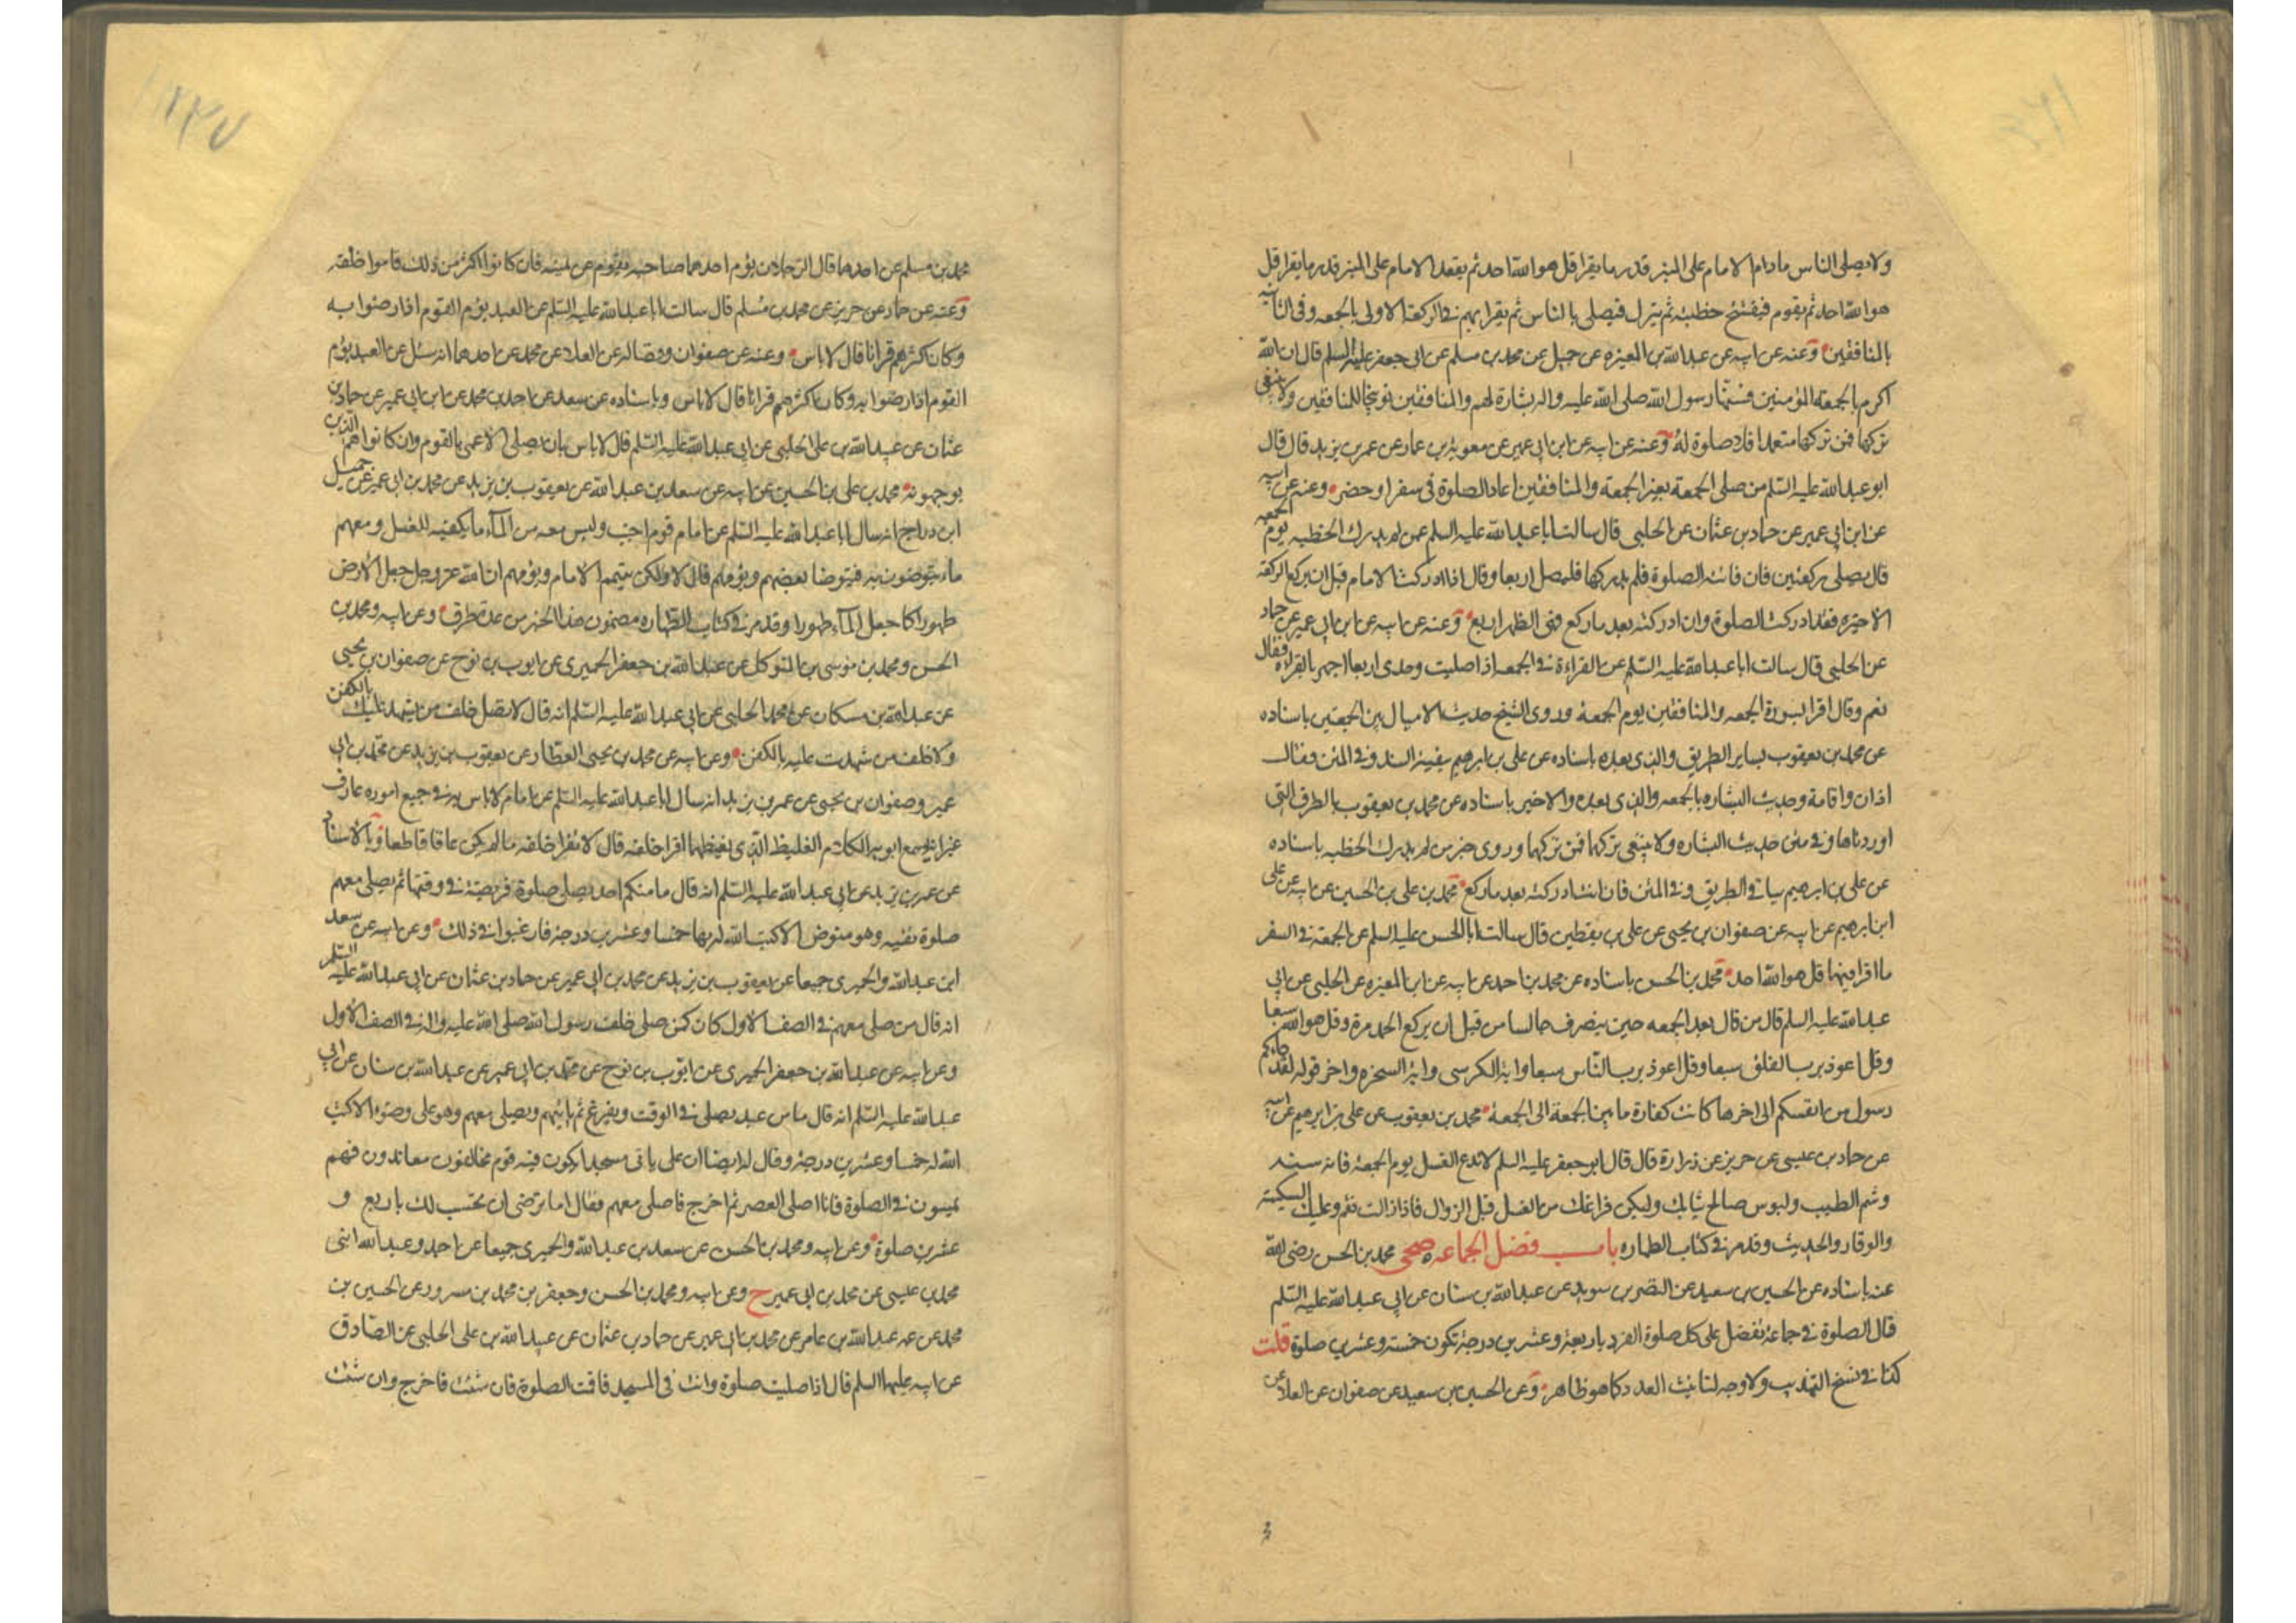 ولا يصلى الناس مادام الامام على المنبر قدر ما يقرا قل هو الله احد ثم يقعد الامام على المنبر قدر ما يقرا قل
هو الله احد ثم يقوم فيفتتح خطبته ثم ينزل فيصلى بالناس ثم يقرا بهم فى الركعة الاولى بالجمعه وفى الثانيه
بالمنافقين وعنه عن ابيه عن عبد الله بن المغيره عن جميل عن محمد بن مسلم عن ابى جعفر عليه السلم قال ان الله
اكرم بالجمعة المؤمنين فسنها رسول الله صلى الله عليه واله بشارة لهم والمنافقين توبيخا للمنافقين ولا ينبغى
تركها فمن تركها متعمدا فلا صلوة له وعنه عن ابيه عن ابن ابى عمير عن معوية بن عمار عن عمر بن يزيد قال قال
ابو عبد الله عليه السلم من صلى الجمعة بغير الجمعة والمنافقين اعاد الصلوة فى سفر او حضر وعنه عن ابيه
عن ابن ابى عمير عن حماد بن عثمان عن الحلبى قال سالت ابا عبد الله عليه السلم عمن لم يدرك الخطبه يوم الجمعه
قال يصلى ركعتين فان فاتته الصلوة فلم يدركها فليصل اربعا وقال اذا ادركت الامام قبل ان يركع الركعة
الاخيره فقد ادركت الصلوة وان ادركته بعد ما ركع فهى الظهر اربع وعنه عن ابيه عن ابن ابى عمير عن حماد
عن الحلبى قال سالت ابا عبد الله عليه السلم عن القراءة فى الجمعه اذا صليت وحدى اربعا اجهر بالقراءه فقال
نعم وقال اقرا بسورة الجمعه والمنافقين يوم الجمعة وروى الشيخ حديث الاميال بين الجمعتين باسناده
عن محمد بن يعقوب بساير الطريق والذى بعده باسناده عن على بن ابرهيم ببقية السند وفى المتن وقال
اذان واقامة وحديث البشاره بالجمعه والذى بعده والاخير باسناده عن محمد بن يعقوب بالطرق التى
اوردناها وفى متن حديث البشاره ولا ينبغى تركها فمن تركها وروى خبر من لم يدرك الخطبه باسناده
عن على بن ابرهيم بباقى الطريق وفى المتن فان انت ادركته بعد ما ركع محمد بن على بن الحسين عن ابيه عن على
ابن ابرهيم عن ابيه عن صفوان بن يحيى عن على بن يقطين قال سالت ابا الحسن عليه السلم عن الجمعة فى السفر
ما اقرا فيهما قل هو الله احد محمد بن الحسن باسناده عن محمد بن احمد عن ابيه عن ابن المغيره عن الحلبى عن ابى
عبد الله عليه السلم قال من قال بعد الجمعه حين ينصرف جالسا من قبل ان يركع الحمد مرة وقل هو الله سبعا
وقل اعوذ برب الفلق سبعا وقل اعوذ برب الناس سبعا واية الكرسى واية السخره واخر قوله لقد جاءكم
رسول من انفسكم الى اخرها كانت كفارة ما بين الجمعة الى الجمعة محمد بن يعقوب عن على بن ابرهيم عن ابيه
عن حماد بن عيسى عن حريز عن زرارة قال قال ابو جعفر عليه السلم لا تدع الغسل يوم الجمعة فانه سنه
وشم الطيب ولبوس صالح ثيابك وليكن فراغك من الغسل قبل الزوال فاذا زالت فقم وعليك السكينة
والوقار والحديث وقد مر فى كتاب الطهاره باب فضل الجماعه صحى محمد بن الحسن رضى الله
عنه باسناده عن الحسين بن سعيد عن النضر بن سويد عن عبد الله بن سنان عن ابى عبد الله عليه السلم
قال الصلوة فى جماعة تفضل على كل صلوة الفرد باربعة وعشرين درجة تكون خمسة وعشرين صلوة قلت
كذا فى نسخ التهذيب ولا وجه لتانيث العدد كما هو ظاهر وعن الحسين بن سعيد عن صفوان عن العلاء عن
محمد بن مسلم عن احدهما قال الرجلان يؤم احدهما صاحبه يقوم عن يمينه فان كانوا اكثر من ذلك قاموا خلفه
وعنه عن حماد عن حريز عن محمد بن مسلم قال سالت ابا عبد الله عليه السلم عن العبد يؤم القوم اذا رضوا به
وكان اكثرهم قرانا قال لا باس وعنه عن صفوان وفضاله عن العلاء عن محمد عن احدهما انه سئل عن العبد يؤم
القوم اذا رضوا به وكان اكثرهم قرانا قال لا باس وباسناده عن سعد عن احمد بن محمد عن ابن ابى عمير عن حماد بن
عثمان عن عبيد الله بن على الحلبى عن ابى عبد الله عليه السلم قال لا باس بان يصلى الاعمى بالقوم وان كانوا هم الذين
يوجهونه محمد بن على بن الحسين عن ابيه عن سعد بن عبد الله عن يعقوب بن يزيد عن محمد بن ابى عمير عن جميل
ابن دراج انه سال ابا عبد الله عليه السلم عن امام قوم اجنب وليس معه من الماء ما يكفيه للغسل ومعهم
ماء يتوضون به فيتوضا بعضهم ويؤمهم قال لا ولكن يتيمم الامام ويؤمهم ان الله عز وجل جعل الارض
طهورا كما جعل الماء طهورا وقد مر فى كتاب الطهاره مضمون هذا الخبر من عدة طرق وعن ابيه ومحمد بن
الحسن ومحمد بن موسى بن المتوكل عن عبد الله بن جعفر الحميرى عن ايوب بن نوح عن صفوان بن يحيى
عن عبد الله بن مسكان عن محمد الحلبى عن ابى عبد الله عليه السلم انه قال لا تصل خلف من يشهد عليك بالكفر
ولا خلف من شهدت عليه بالكفر وعن ابيه عن محمد بن يحيى العطار عن يعقوب بن يزيد عن محمد بن ابى
عمير وصفوان بن يحيى عن عمر بن يزيد انه سال ابا عبد الله عليه السلم عن امام لا باس به فى جميع اموره عارف
غير انه يسمع ابويه الكلام الغليظ الذى يغيظهما اقرا خلفه قال لا تقرا خلفه ما لم يكن عاقا قاطعا وبالاسناد
عن عمر بن يزيد عن ابى عبد الله عليه السلم انه قال ما منكم احد يصلى صلوة فريضة فى وقتها ثم يصلى معهم
صلوة تقيه وهو متوض الا كتب الله له بها خمسا وعشرين درجة فارغبوا فى ذلك وعن ابيه عن سعد
ابن عبد الله والحميرى جميعا عن يعقوب بن يزيد عن محمد بن ابى عمير عن حماد بن عثمان عن ابى عبد الله عليه السلم
انه قال من صلى معهم فى الصف الاول كان كمن صلى خلف رسول الله صلى الله عليه واله فى الصف الاول
وعن ابيه عن عبد الله بن جعفر الحميرى عن ايوب بن نوح عن محمد بن ابى عمير عن عبد الله بن سنان عن ابى
عبد الله عليه السلم انه قال ما من عبد يصلى فى الوقت ويفرغ ثم ياتيهم ويصلى معهم وهو على وضوء الا كتب
الله له خمسا وعشرين درجة وقال له ايضا ان على بابى مسجدا يكون فيه قوم مخالفون معاندون فهم
يمسون فى الصلوة فانا اصلى العصر ثم اخرج فاصلى معهم فقال اما ترضى ان تحتسب لك باربع و
عشرين صلوة وعن ابيه ومحمد بن الحسن عن سعد بن عبد الله والحميرى جميعا عن احمد وعبد الله ابنى
محمد بن عيسى عن محمد بن ابى عمير ح وعن ابيه ومحمد بن الحسن وجعفر بن محمد بن مسرور عن الحسين بن
محمد عن عمه عبد الله بن عامر عن محمد بن ابى عمير عن حماد بن عثمان عن عبيد الله بن على الحلبى عن الصادق
عن ابيه عليهما السلم قال اذا صليت صلوة وانت فى المسجد فاقمت الصلوة فان شئت فاخرج وان شئت